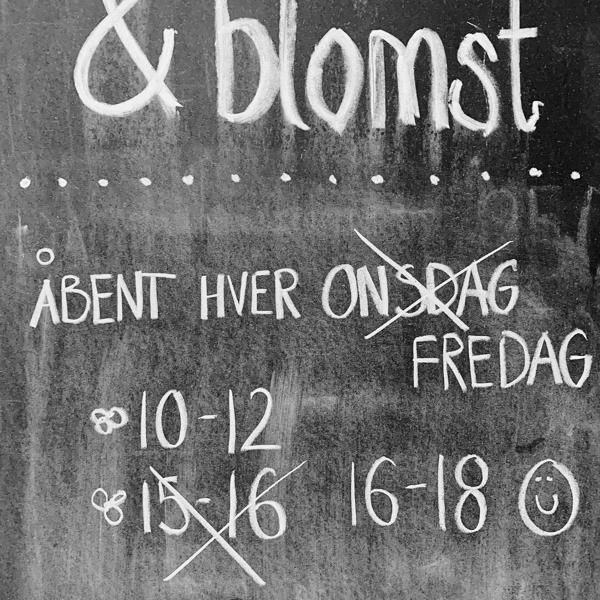 & blomst
ÅBENT HVER ONSDAG
FREDAG
10-12
15-16 16-18